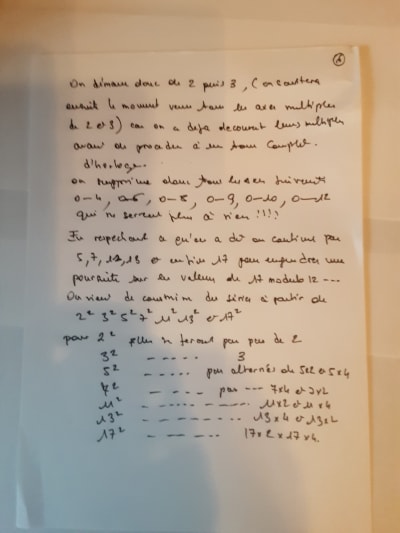 6
On démarre donc de 2 puis 3, (on sautera
ensuite le moment venu tous les axes multiples
de 2 et 3) car on a déjà découvert leurs multiples
avant de procéder à un tour complet.
d'horloge.
on supprime donc tous les axes suivants
0-4, 0-6, 0-8, 0-9, 0-10, 0-12
qui ne servent plus à rien !!!!
En respectant ce qu'on a dit on continue par
5, 7, 11, 13 et enfin 17 pour une
poursuite sur les valeurs de 17 modulo 12 ---
On vient de construire des séries à partir de
2² 3² 5² 7² 11² 13² et 17²
pour 2² elles se feront par pas de 2
3² ----- 3
5² ----- pas alternés de 5x2 et 5x4
7² ---- par --- 7x4 et 7x2
11² ------- 11x2 et 11x4
13² ------- 13x4 et 13x2
17² ------- 17x2 x 17x4.